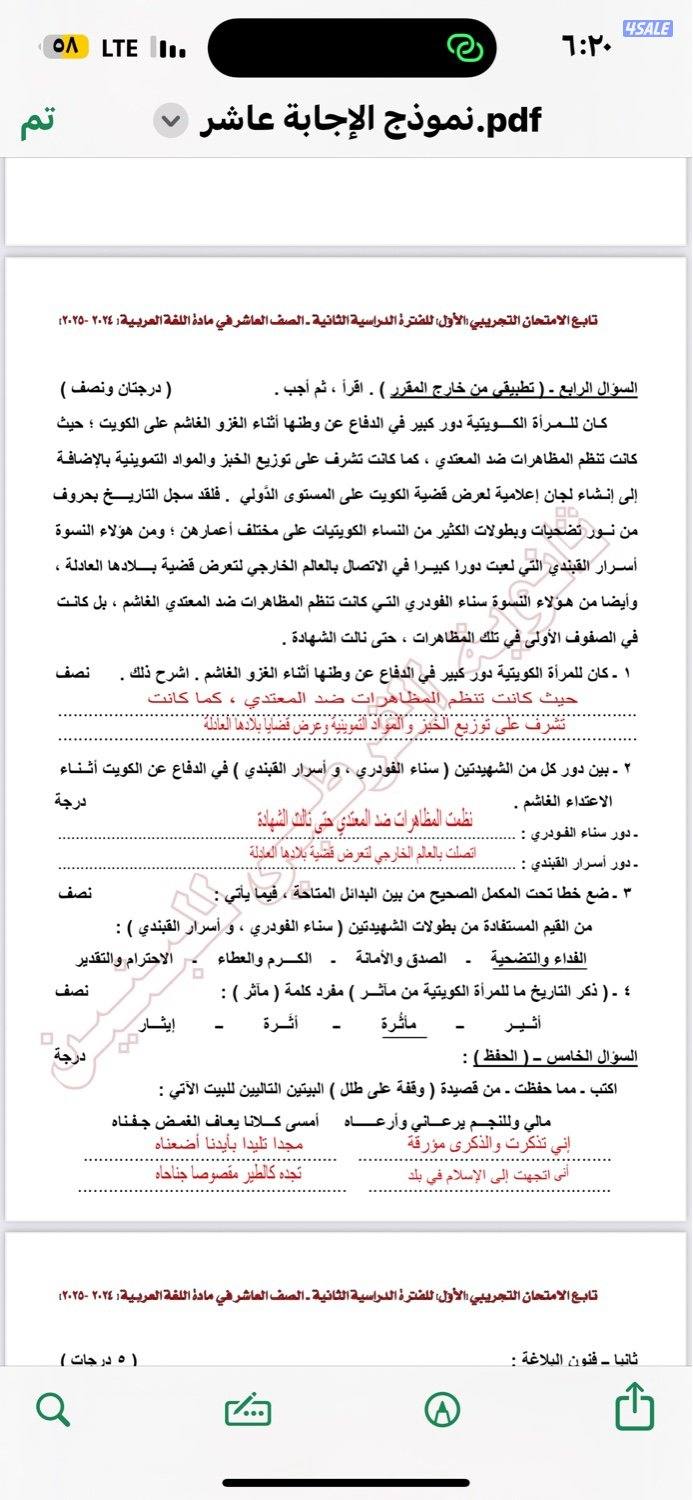 ٦:٢٠
LTE
٥٨
4SALE
نموذج الإجابة عاشر.pdf
تم
تابع الامتحان التجريبي (الأول) للفترة الدراسية الثانية ـ الصف العاشر في مادة اللغة العربية: ٢٠٢٤ -٢٠٢٥
السؤال الرابع ـ ( تطبيقي من خارج المقرر ) . اقرأ ، ثم أجب . ( درجتان ونصف )
كان للمرأة الكويتية دور كبير في الدفاع عن وطنها أثناء الغزو الغاشم على الكويت ؛ حيث
كانت تنظم المظاهرات ضد المعتدي ، كما كانت تشرف على توزيع الخبز والمواد التموينية بالإضافة
إلى إنشاء لجان إعلامية لعرض قضية الكويت على المستوى الدَّولي . فلقد سجل التاريخ بحروف
من نور تضحيات وبطولات الكثير من النساء الكويتيات على مختلف أعمارهن ؛ ومن هؤلاء النسوة
أسرار القبندي التي لعبت دورا كبيرا في الاتصال بالعالم الخارجي لتعرض قضية بلادها العادلة ،
وأيضا من هؤلاء النسوة سناء الفودري التي كانت تنظم المظاهرات ضد المعتدي الغاشم ، بل كانت
في الصفوف الأولى في تلك المظاهرات ، حتى نالت الشهادة .
١ ـ كان للمرأة الكويتية دور كبير في الدفاع عن وطنها أثناء الغزو الغاشم . اشرح ذلك . نصف
حيث كانت تنظم المظاهرات ضد المعتدي ، كما كانت
تشرف على توزيع الخبز والمواد التموينية وعرض قضايا بلادها العادلة
٢ ـ بين دور كل من الشهيدتين ( سناء الفودري ، و أسرار القبندي ) في الدفاع عن الكويت أثناء
الاعتداء الغاشم . درجة
نظمت المظاهرات ضد المعتدي حتى نالت الشهادة
ـ دور سناء الفودري :
اتصلت بالعالم الخارجي لتعرض قضية بلادها العادلة
ـ دور أسرار القبندي :
٣ ـ ضع خطا تحت المكمل الصحيح من بين البدائل المتاحة ، فيما يأتي : نصف
من القيم المستفادة من بطولات الشهيدتين ( سناء الفودري ، و أسرار القبندي ) :
الفداء والتضحية ـ الصدق والأمانة ـ الكرم والعطاء ـ الاحترام والتقدير
٤ ـ ( ذكر التاريخ ما للمرأة الكويتية من مآثر ) مفرد كلمة ( مآثر ) : نصف
أثير ـ مأثُرة ـ أثَرة ـ إيثار
السؤال الخامس ـ ( الحفظ ) : درجة
اكتب ـ مما حفظت ـ من قصيدة ( وقفة على طلل ) البيتين التاليين للبيت الآتي :
مالي وللنجم يرعاني وأرعاه أمسى كلانا يعاف الغمض جفناه
إني تذكرت والذكرى مؤرقة مجدا تليدا بأيدنا أضعناه
أنى اتجهت إلى الإسلام في بلد تجده كالطير مقصوصا جناحاه
ثانوية القرطبي للبنين
تابع الامتحان التجريبي (الأول) للفترة الدراسية الثانية ـ الصف العاشر في مادة اللغة العربية: ٢٠٢٤ -٢٠٢٥
ثانيا ـ فنون البلاغة : ( ٥ درجات )